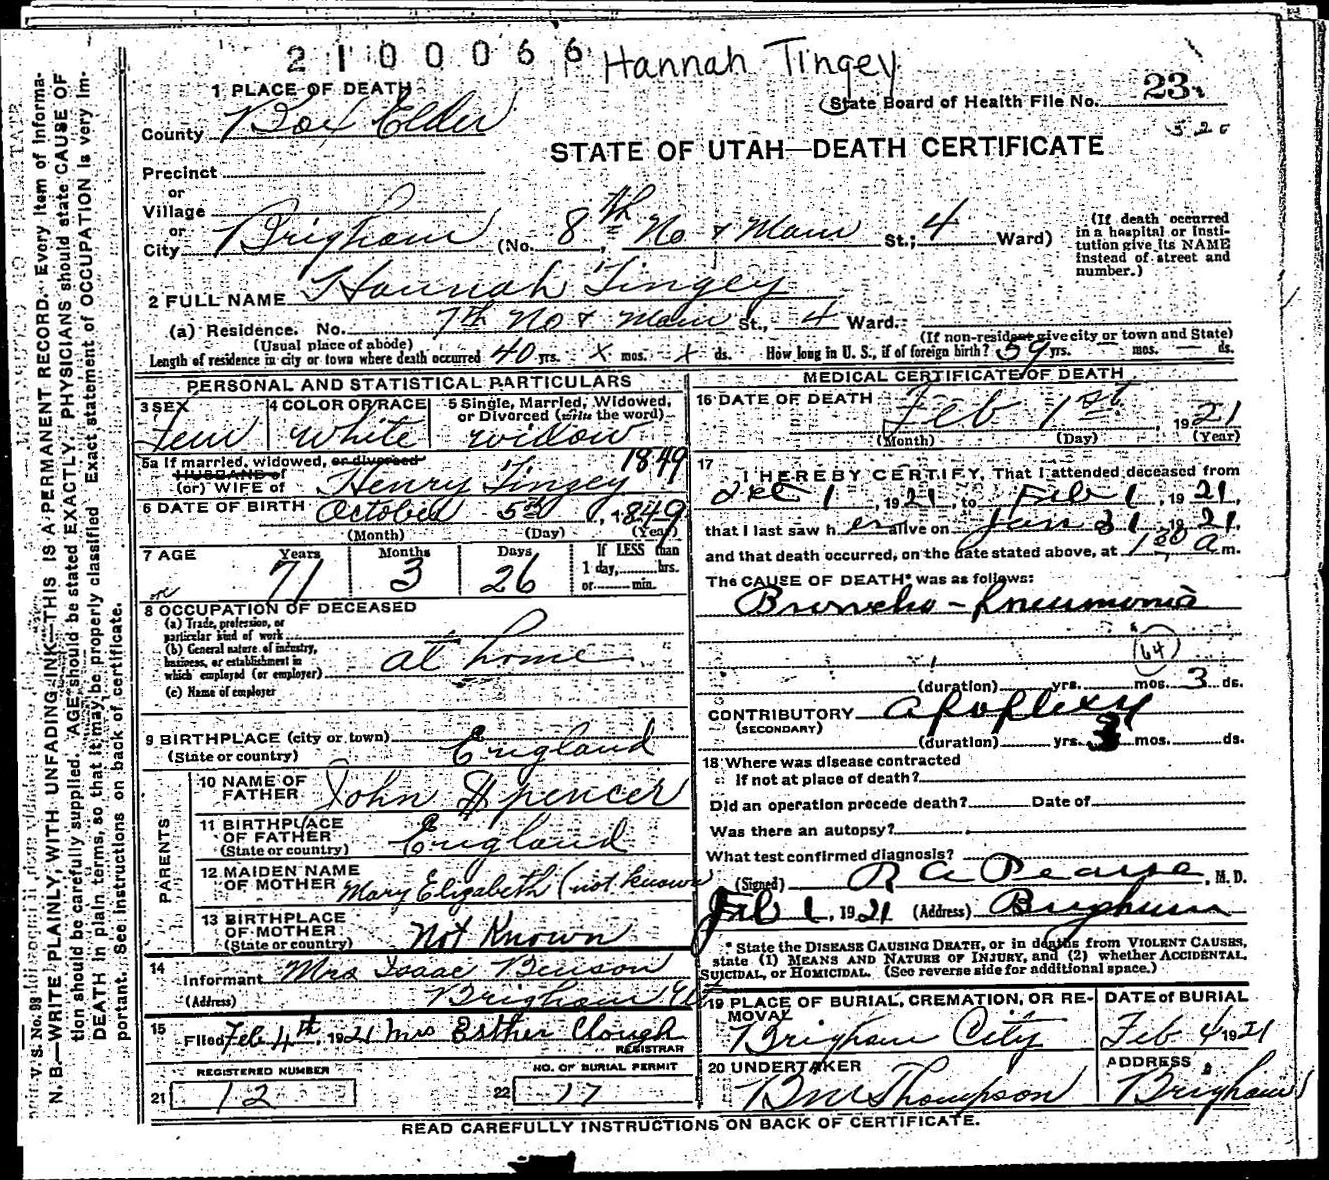 2100066 Hannah Tingey
1 PLACE OF DEATH
(State Board of Health File No. 23
County Box Elder
520
STATE OF UTAH—DEATH CERTIFICATE
Precinct
or
Village
or
City Brigham (No. 8th No & Main St.; 4 Ward)
(If death occurred in a hospital or institution give its NAME instead of street and number.)
2 FULL NAME Hannah Tingey
(a) Residence. No. 7th No & Main St., 4 Ward.
(Usual place of abode) (If non-resident give city or town and State)
Length of residence in city or town where death occurred 40 yrs. x mos. x ds. How long in U. S., if of foreign birth? 59 yrs. — mos. — ds.
PERSONAL AND STATISTICAL PARTICULARS
3 SEX Fem
4 COLOR OR RACE White
5 Single, Married, Widowed, or Divorced (write the word) widow
5a If married, widowed, or divorced 1849
HUSBAND of
(or) WIFE of Henry Tingey
6 DATE OF BIRTH October 5th, 1849
(Month) (Day) (Year)
7 AGE Years 71 Months 3 Days 26
If LESS than 1 day, hrs. or min.
8 OCCUPATION OF DECEASED
(a) Trade, profession, or particular kind of work
(b) General nature of industry, business, or establishment in which employed (or employer) at home
(c) Name of employer
9 BIRTHPLACE (city or town) England
(State or country)
PARENTS
10 NAME OF FATHER John Spencer
11 BIRTHPLACE OF FATHER England
(State or country)
12 MAIDEN NAME OF MOTHER Mary Elizabeth (not known
13 BIRTHPLACE OF MOTHER Not Known
(State or country)
14 Informant Mrs Isaac Benson
(Address) Brigham
15 Filed Feb 4th, 1921 Mrs Esther Clough
REGISTRAR
REGISTERED NUMBER NO. OF BURIAL PERMIT
21 12 22 17
MEDICAL CERTIFICATE OF DEATH
16 DATE OF DEATH Feb 1st, 1921
(Month) (Day) (Year)
17 I HEREBY CERTIFY, That I attended deceased from
1, 1921, to Feb 1, 1921,
that I last saw her alive on Jan 31, 1921,
and that death occurred, on the date stated above, at a m.
The CAUSE OF DEATH* was as follows:
Broncho-Pneumonia
64
(duration) yrs. mos. 3 ds.
CONTRIBUTORY Apoplexy
(SECONDARY)
(duration) yrs. 3 mos. ds.
18 Where was disease contracted
If not at place of death?
Did an operation precede death? Date of
Was there an autopsy?
What test confirmed diagnosis?
(Signed) R A Pearse, M. D.
Feb 1, 1921 (Address) Brigham
* State the DISEASE CAUSING DEATH, or in deaths from VIOLENT CAUSES, state (1) MEANS AND NATURE OF INJURY, and (2) whether ACCIDENTAL, SUICIDAL, or HOMICIDAL. (See reverse side for additional space.)
19 PLACE OF BURIAL, CREMATION, OR REMOVAL Brigham City
DATE of BURIAL Feb 4 1921
20 UNDERTAKER Thompson
ADDRESS Brigham
READ CAREFULLY INSTRUCTIONS ON BACK OF CERTIFICATE.
V. S. No. 98
N. B.—WRITE PLAINLY, WITH UNFADING INK—THIS IS A PERMANENT RECORD. Every item of information should be carefully supplied. AGE should be stated EXACTLY. PHYSICIANS should state CAUSE OF DEATH in plain terms, so that it may be properly classified. Exact statement of OCCUPATION is very important. See instructions on back of certificate.